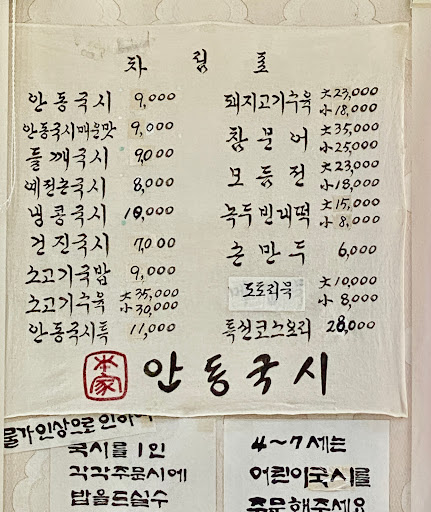 차림표
안동국시 9,000
안동국시매운맛 9,000
들깨국시 9,000
예전손국시 8,000
냉콩국시 10,000
건진국시 7,000
소고기국밥 9,000
소고기수육 大 35,000
小 30,000
안동국시특 11,000
돼지고기수육 大 23,000
小 18,000
참문어 大 35,000
小 25,000
모듬전 大 23,000
小 18,000
녹두빈대떡 大 15,000
小 8,000
손만두 6,000
도토리묵 大 10,000
小 8,000
특선코스요리 28,000
本家 안동국시
물가인상으로 인하여
국시를 1인
각각주문시에
밥을드실수
4~7세는
어린이국시를
주문해주세요